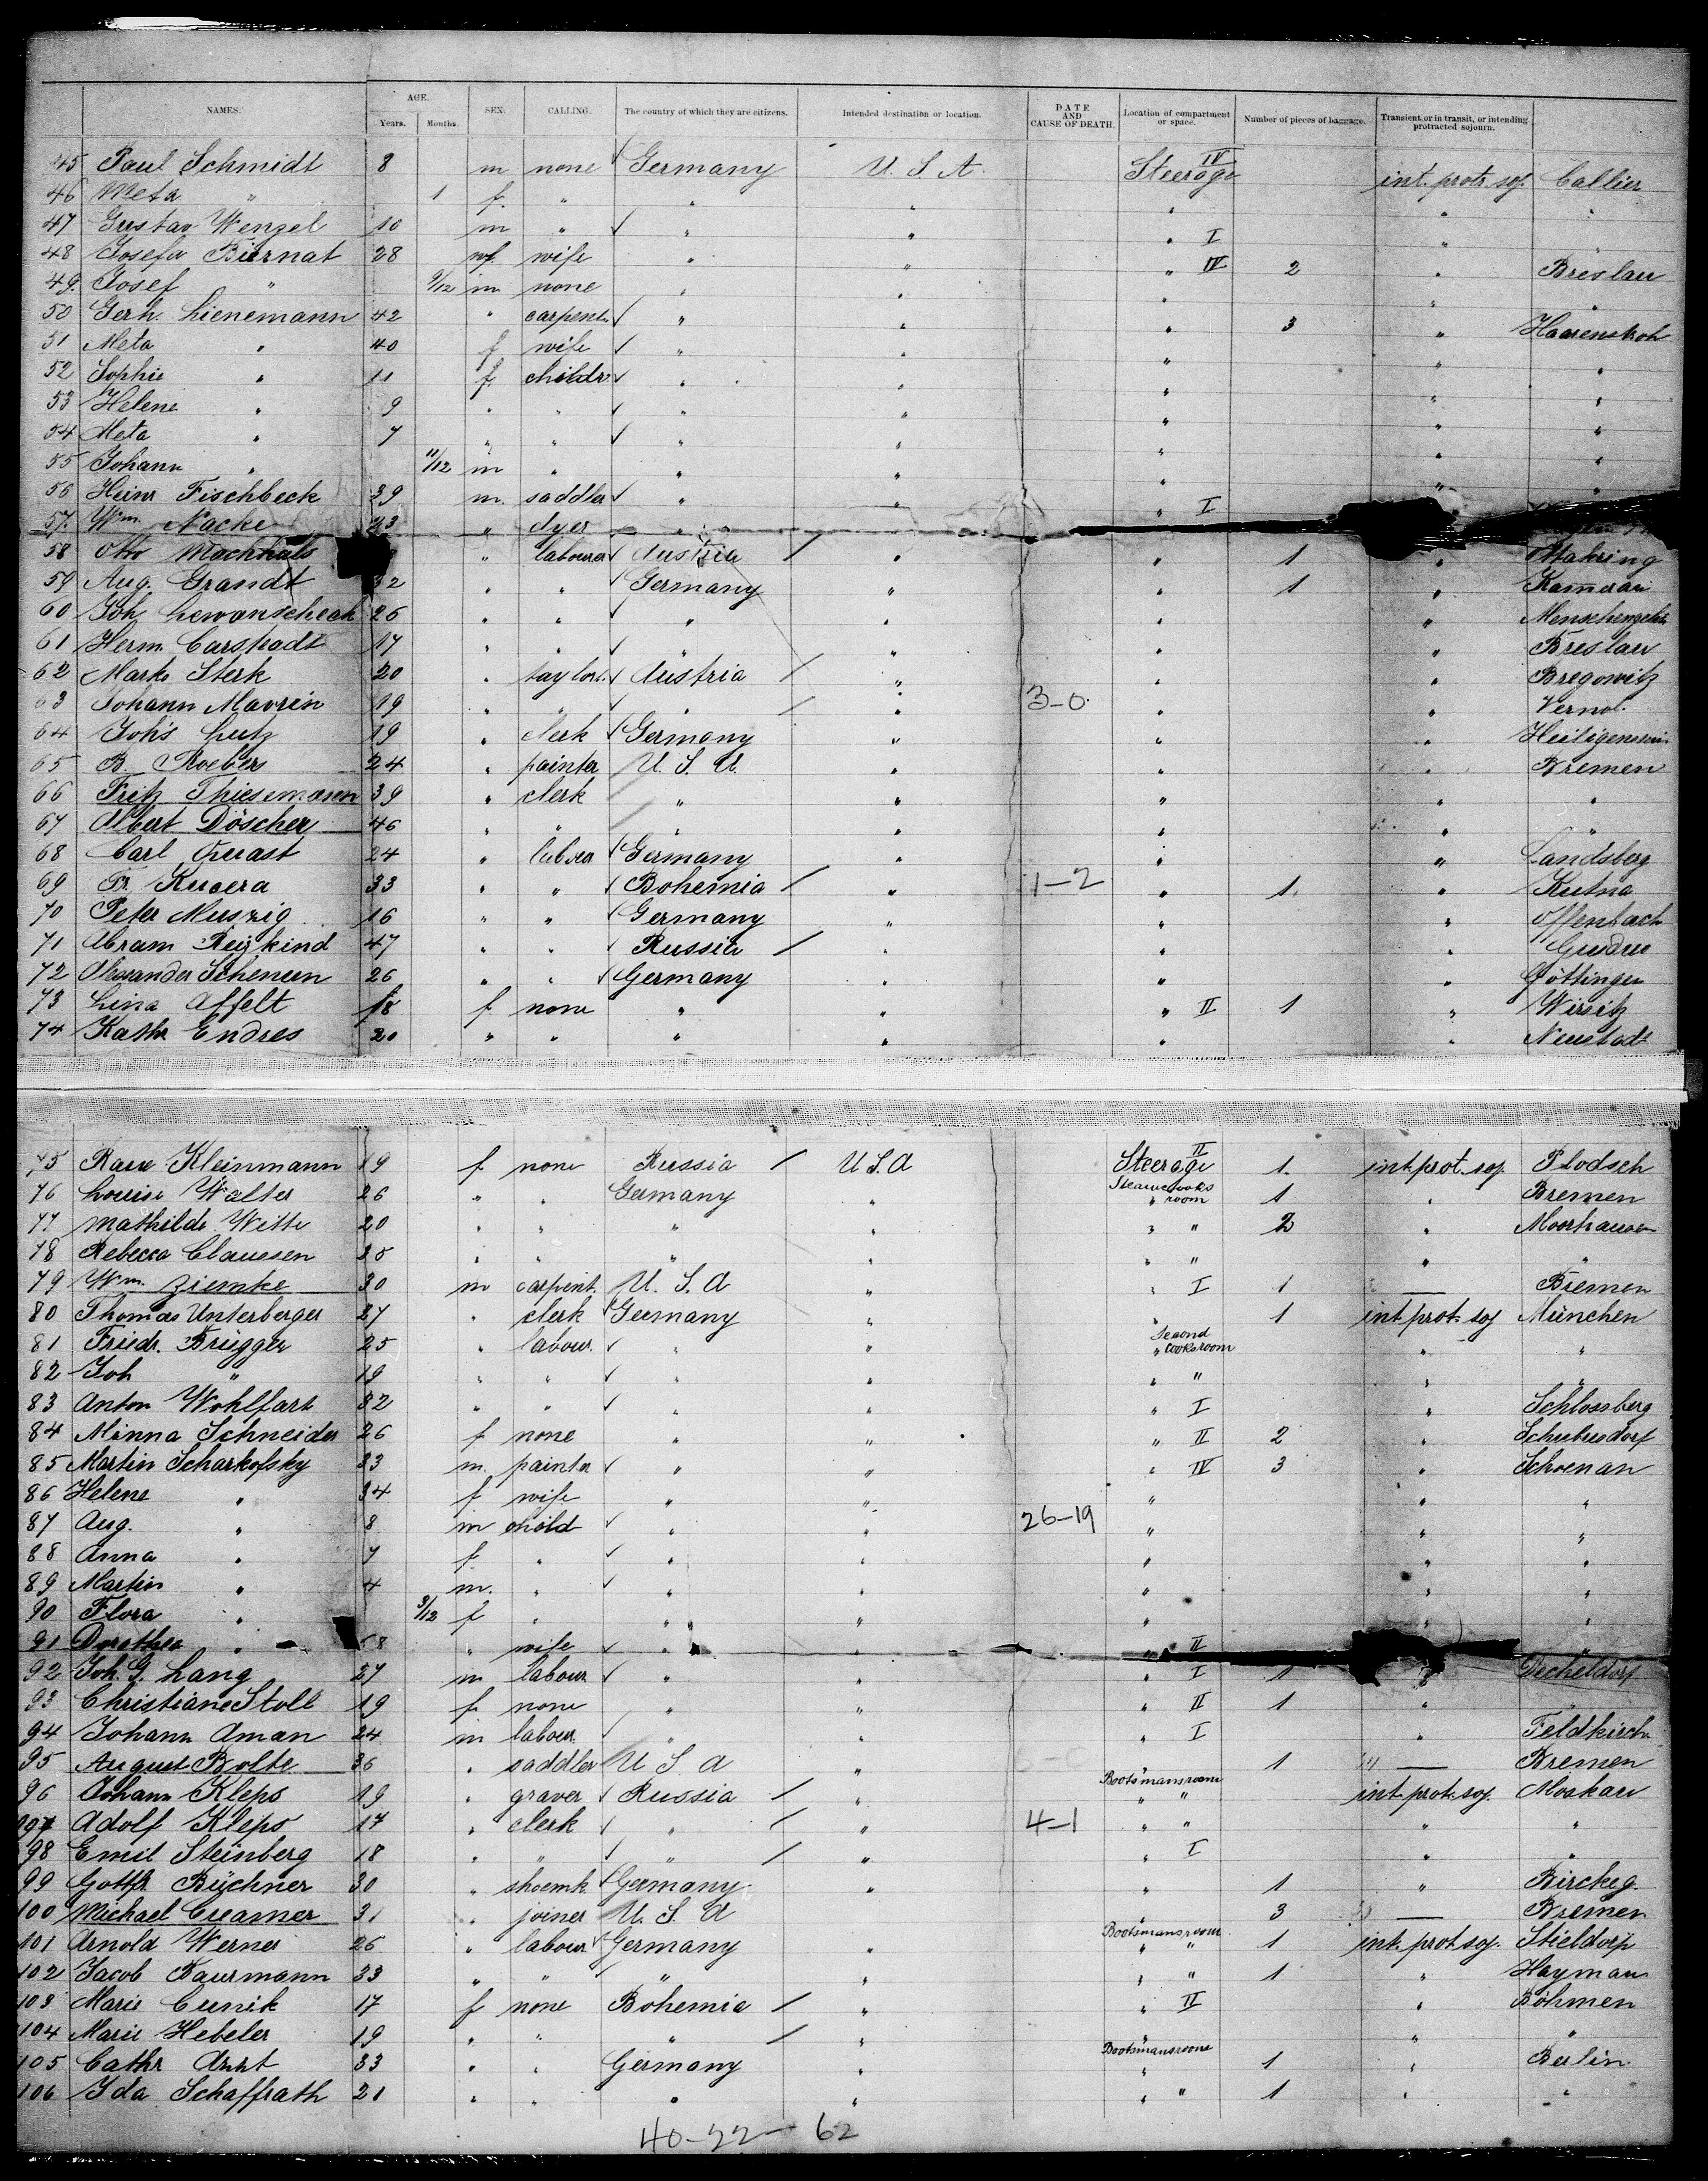 NAMES. AGE. SEX. CALLING. The country of which they are citizens. Intended destination or location. DATE AND CAUSE OF DEATH. Location of compartment or space. Number of pieces of baggage. Transient, or in transit, or intending protracted sojourn.
Years. Months.
45 Paul Schmidt 8 m none Germany U. S. A. Steerage IV int. protr. soj. Callier
46 Meta " 1 f. " " " " " "
47 Gustav Wenzel 10 m " " " " I " "
48 Josefa Biernat 28 f. wife " " " IV 2 " Breslau
49. Josef " 9/12 m none " " " " "
50 Gerh. Lienemann 42 " carpent. " " " 3 "
51 Meta " 40 f wife " " " " "
52 Sophie " 11 f. childr. " " " " "
53 Helene " 9 " " " " " " "
54 Meta " 7 " " " " " " "
55 Johann " 11/12 m " " " " " "
56 Heinr Fischbeck 39 m. saddler " " " I "
57. Wm. Nacke 23 " dyer "
58 Otto " labourer Austria / " " 1 "
59 Aug. Grandt 32 " " Germany " " 1 "
60 Joh 26 " " " " " "
61 Herm. Carstadt 17 " " " " " " Breslau
62 Marko Sterk 20 " taylor. Austria / " " " Bregowitz
63 Johann Mavrin 19 " " " / " 3-0. " " Vernol.
64 Joh's Lutz 19 " clerk Germany " " "
65 B. Roeber 24 " painter U. S. A. " " " Bremen
66 Fritz Thiesemann 39 " clerk " " " " "
67 Albert Döscher 46 " " " " " " "
68 Carl Quast 24 " labour Germany " " " Landsberg
69 Fr. Kucera 33 " " Bohemia / " 1-2 " 1. " Kutna
70 Peter Muszig 16 " " Germany " " " Offenbach
71 Abram Reizkind 47 " " Russia / " " "
72 Alexander Scheneen 26 " " Germany " " " Göttingen
73 Lina Affelt 18 f none " " " II 1 " Wirsitz
74 Kathr Endres 20 " " " " " " Neustadt
75 Kleinmann 19 f none Russia / U S. A Steerage II 1. int. prot. soj. Plodsch
76 Louise Walter 26 " " Germany " " room 1 " Bremen
77 Mathilde Witte 20 " " " " " " 2 " Moorhausen
78 Rebecca Claussen 35 " " " " " " " "
79 Wm. Ziemke 30 m carpent. U. S. A " " I 1 — Bremen
80 Thomas Unterberger 27 " clerk Germany " " 1 int. prot. soj München
81 Friedr. Brügger 25 " labour. " " Second " cooks room " "
82 Joh " 19 " " " " " " " "
83 Anton Wohlfart 32 " " " " " I " Schlossberg
84 Minna Schneider 26 f none " " " II 2 " Schubersdorf
85 Martin Scharkofsky 33 m. painter " " " IV 3 " Schoenan
86 Helene " 34 f wife " " " " "
87 Aug. " 8 m child " " 26-19 " " "
88 Anna " 7 f. " " " " " "
89 Martin " 4 m. " " " " " "
90 Flora " 3/12 f " " " " " "
91 Dorothea " 58 " wife " " " II "
92 Joh. G. Lang 27 m labour. " " " I 1 " Decheldorf
93 Christiane Stoll 19 f none " " " II 1 " "
94 Johann Aman 24 m labour. " " " I " Feldkirch
95 August Bolte 36 " saddler U S A " " 1 — Bremen
96 Johann Kleps 19 " graver Russia / " Bootsmansroom " " int. prot. soj. Moskau
97 Adolf Kleps 17 " clerk " / " 4-1 " " " "
98 Emil Steinberg 18 " " " / " " I " "
99 Gottfr. Büchner 30 " shoemk. Germany " " 1 " Birckeg.
100 Michael Creamer 31 " joiner U. S. A " 3 — Bremen
101 Arnold Werner 26 " labour Germany " Bootsmansroom " " 1 int. prot soj. Stieldorf
102 Jacob Baurmann 33 " " " " " " 1 " Hayman
103 Marie Cunik 17 f none Bohemia / " " II " Böhmen
104 Marie Hebeler 19 " " " / " " " "
105 Cathr Arzt 33 " " Germany " Bootsmansroom " 1 " Berlin.
106 Ida Schaffrath 21 " " " " " " 1 " "
40-22- 62